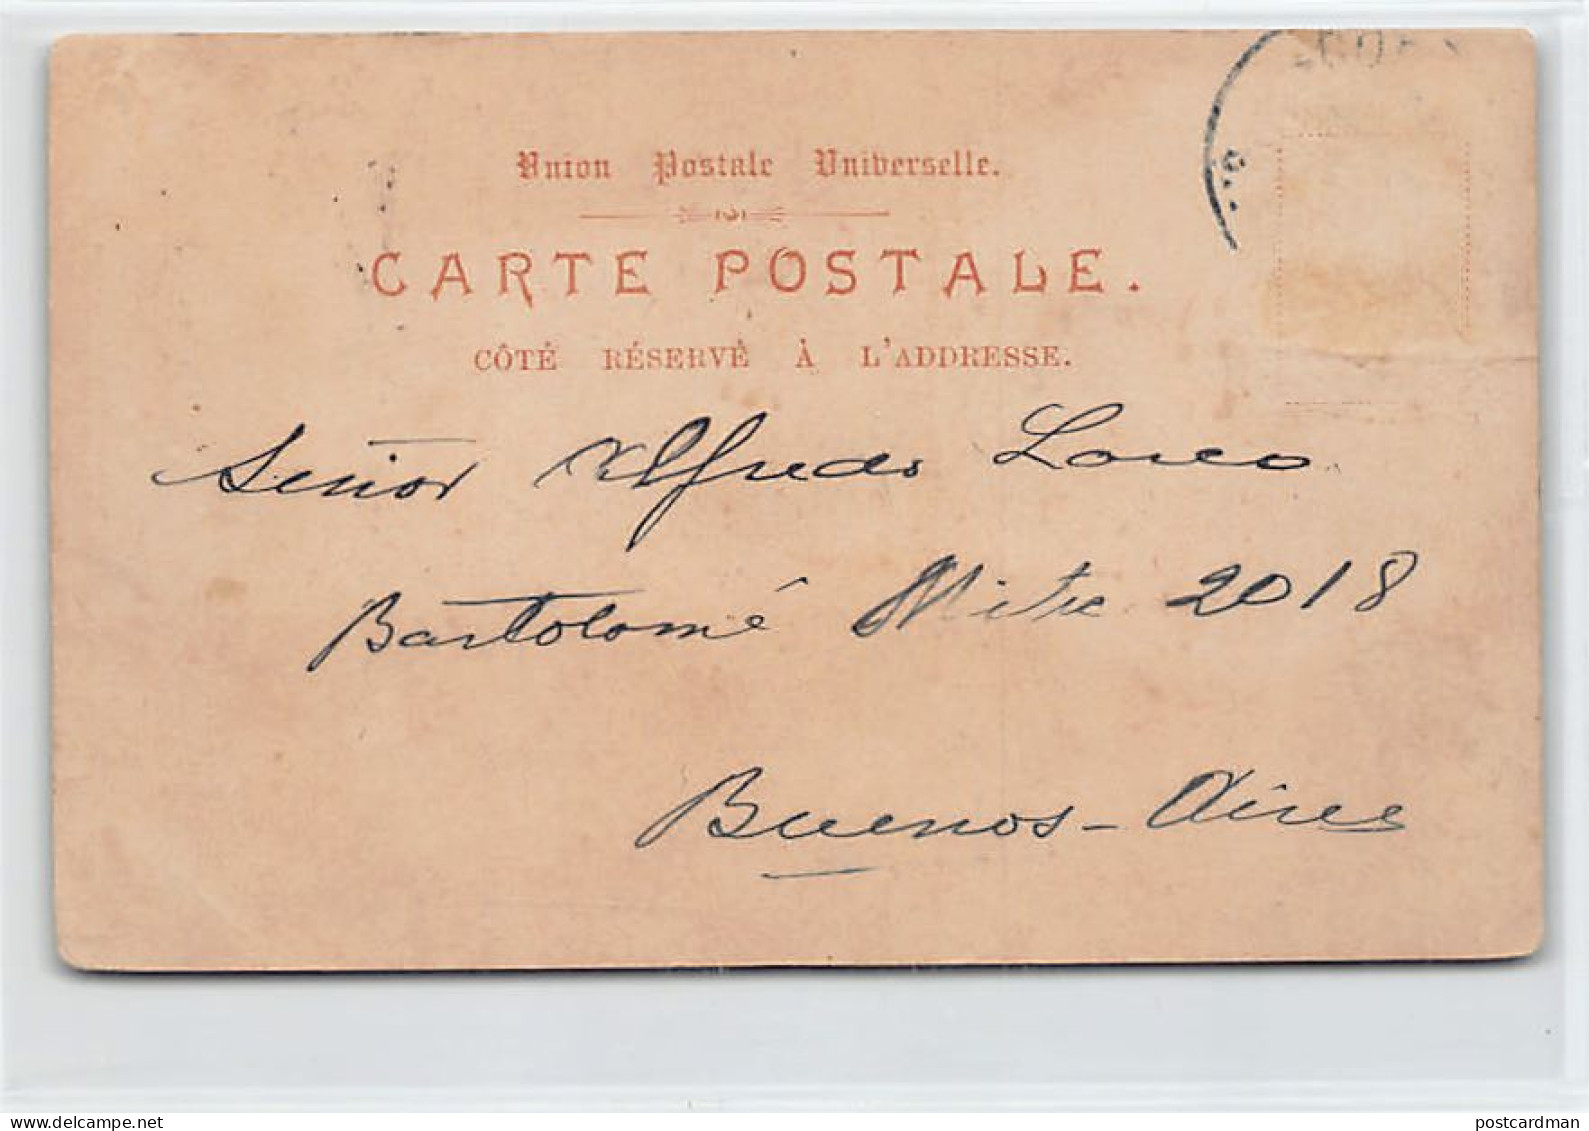 Union Postale Universelle.
CARTE POSTALE.
CÔTÉ RÉSERVÉ À L'ADDRESSE.
Señor Alfredo
Bartolomé Mitre 2018
Buenos-Aires
postcardman